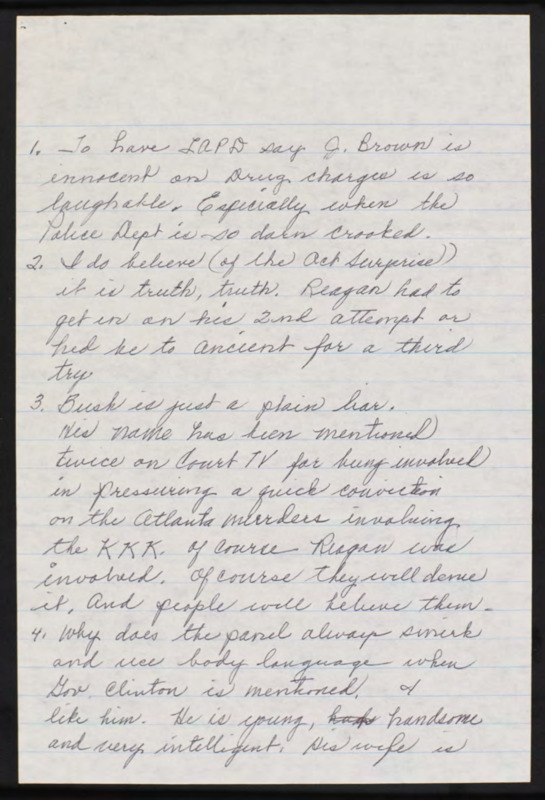 1. To have LAPD say J. Brown is
innocent on Drug charges is so
laughable. Especially when the
Police Dept is so darn crooked.
2. I do believe (of the Oct Surprise)
it is truth, truth. Reagan had to
get in on his 2nd attempt or
hed be to ancient for a third
try
3. Bush is just a plain liar.
His name has been mentioned
twice on Court TV for being involved
in pressuring a quick conviction
on the Atlanta murders involving
the KKK. Of course Reagan was
involved. Of course they will denie
it. And people will believe them.
4. Why does the panel always smirk
and use body language when
Gov. Clinton is mentioned. I
like him. He is young, handsome
and very intelligent. His wife is